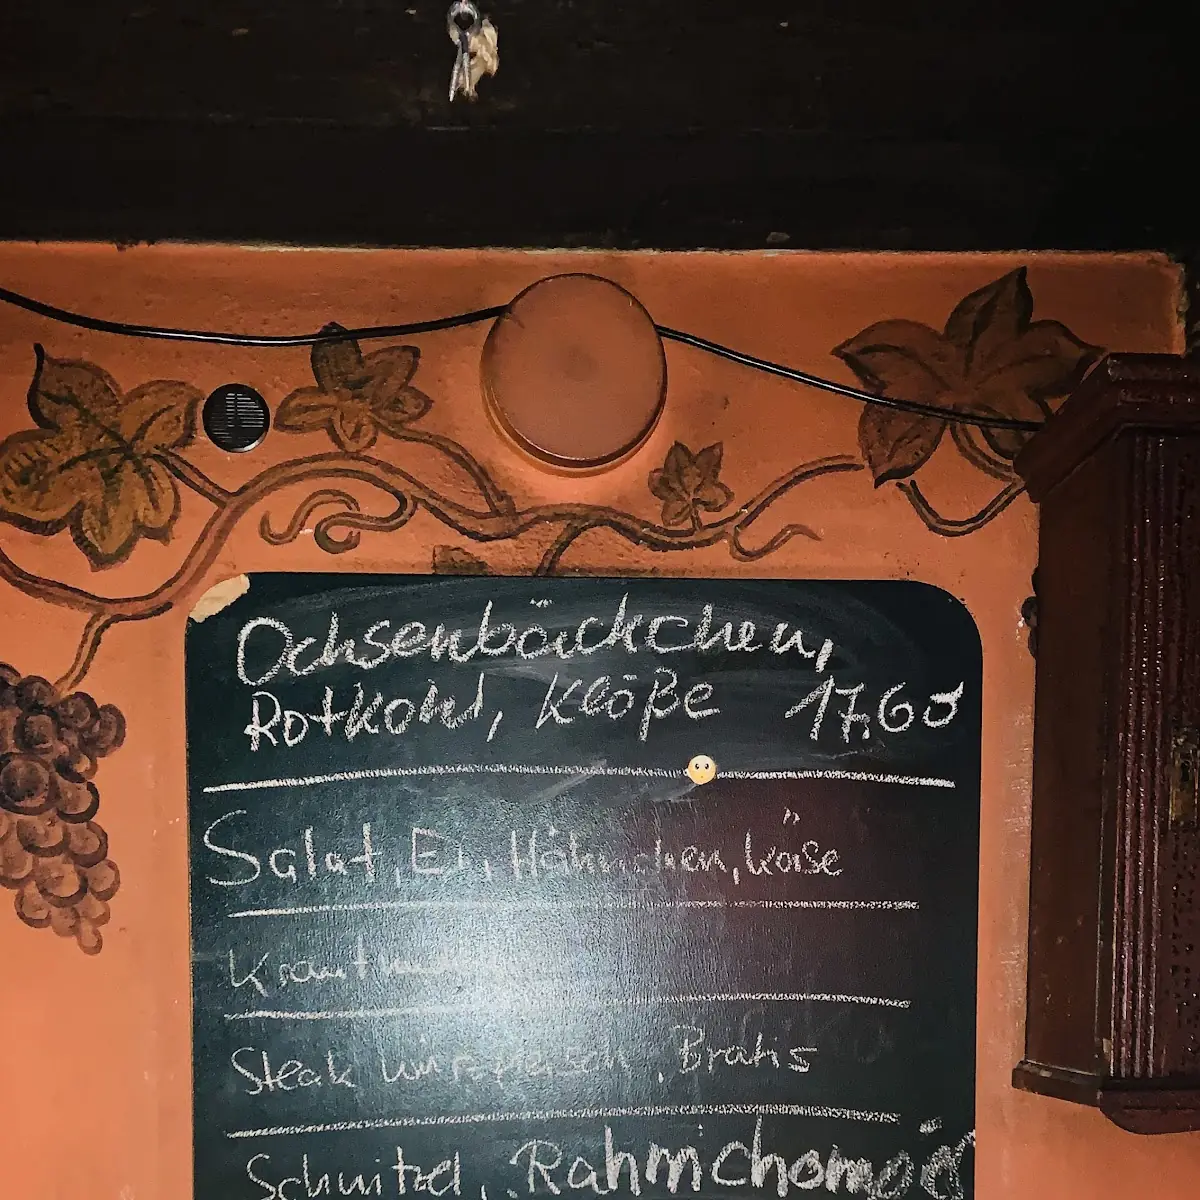 Ochsenbäckchen,
Rotkohl, Klöße 17,60
Salat, Ei, Hähnchen, Käse
Steak , Bratis
Schnitzel,